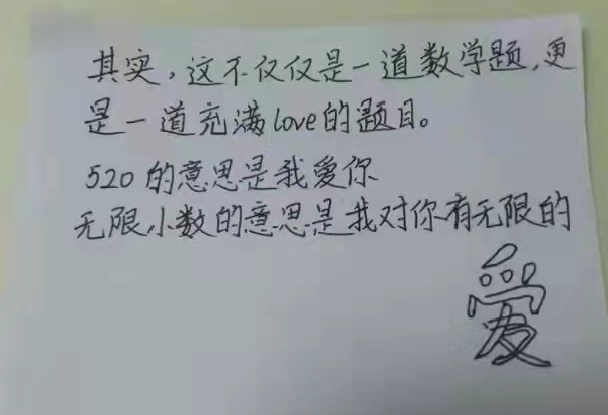 其实，这不仅仅是一道数学题，更
是一道充满love的题目。
520的意思是我爱你
无限小数的意思是我对你有无限的
爱